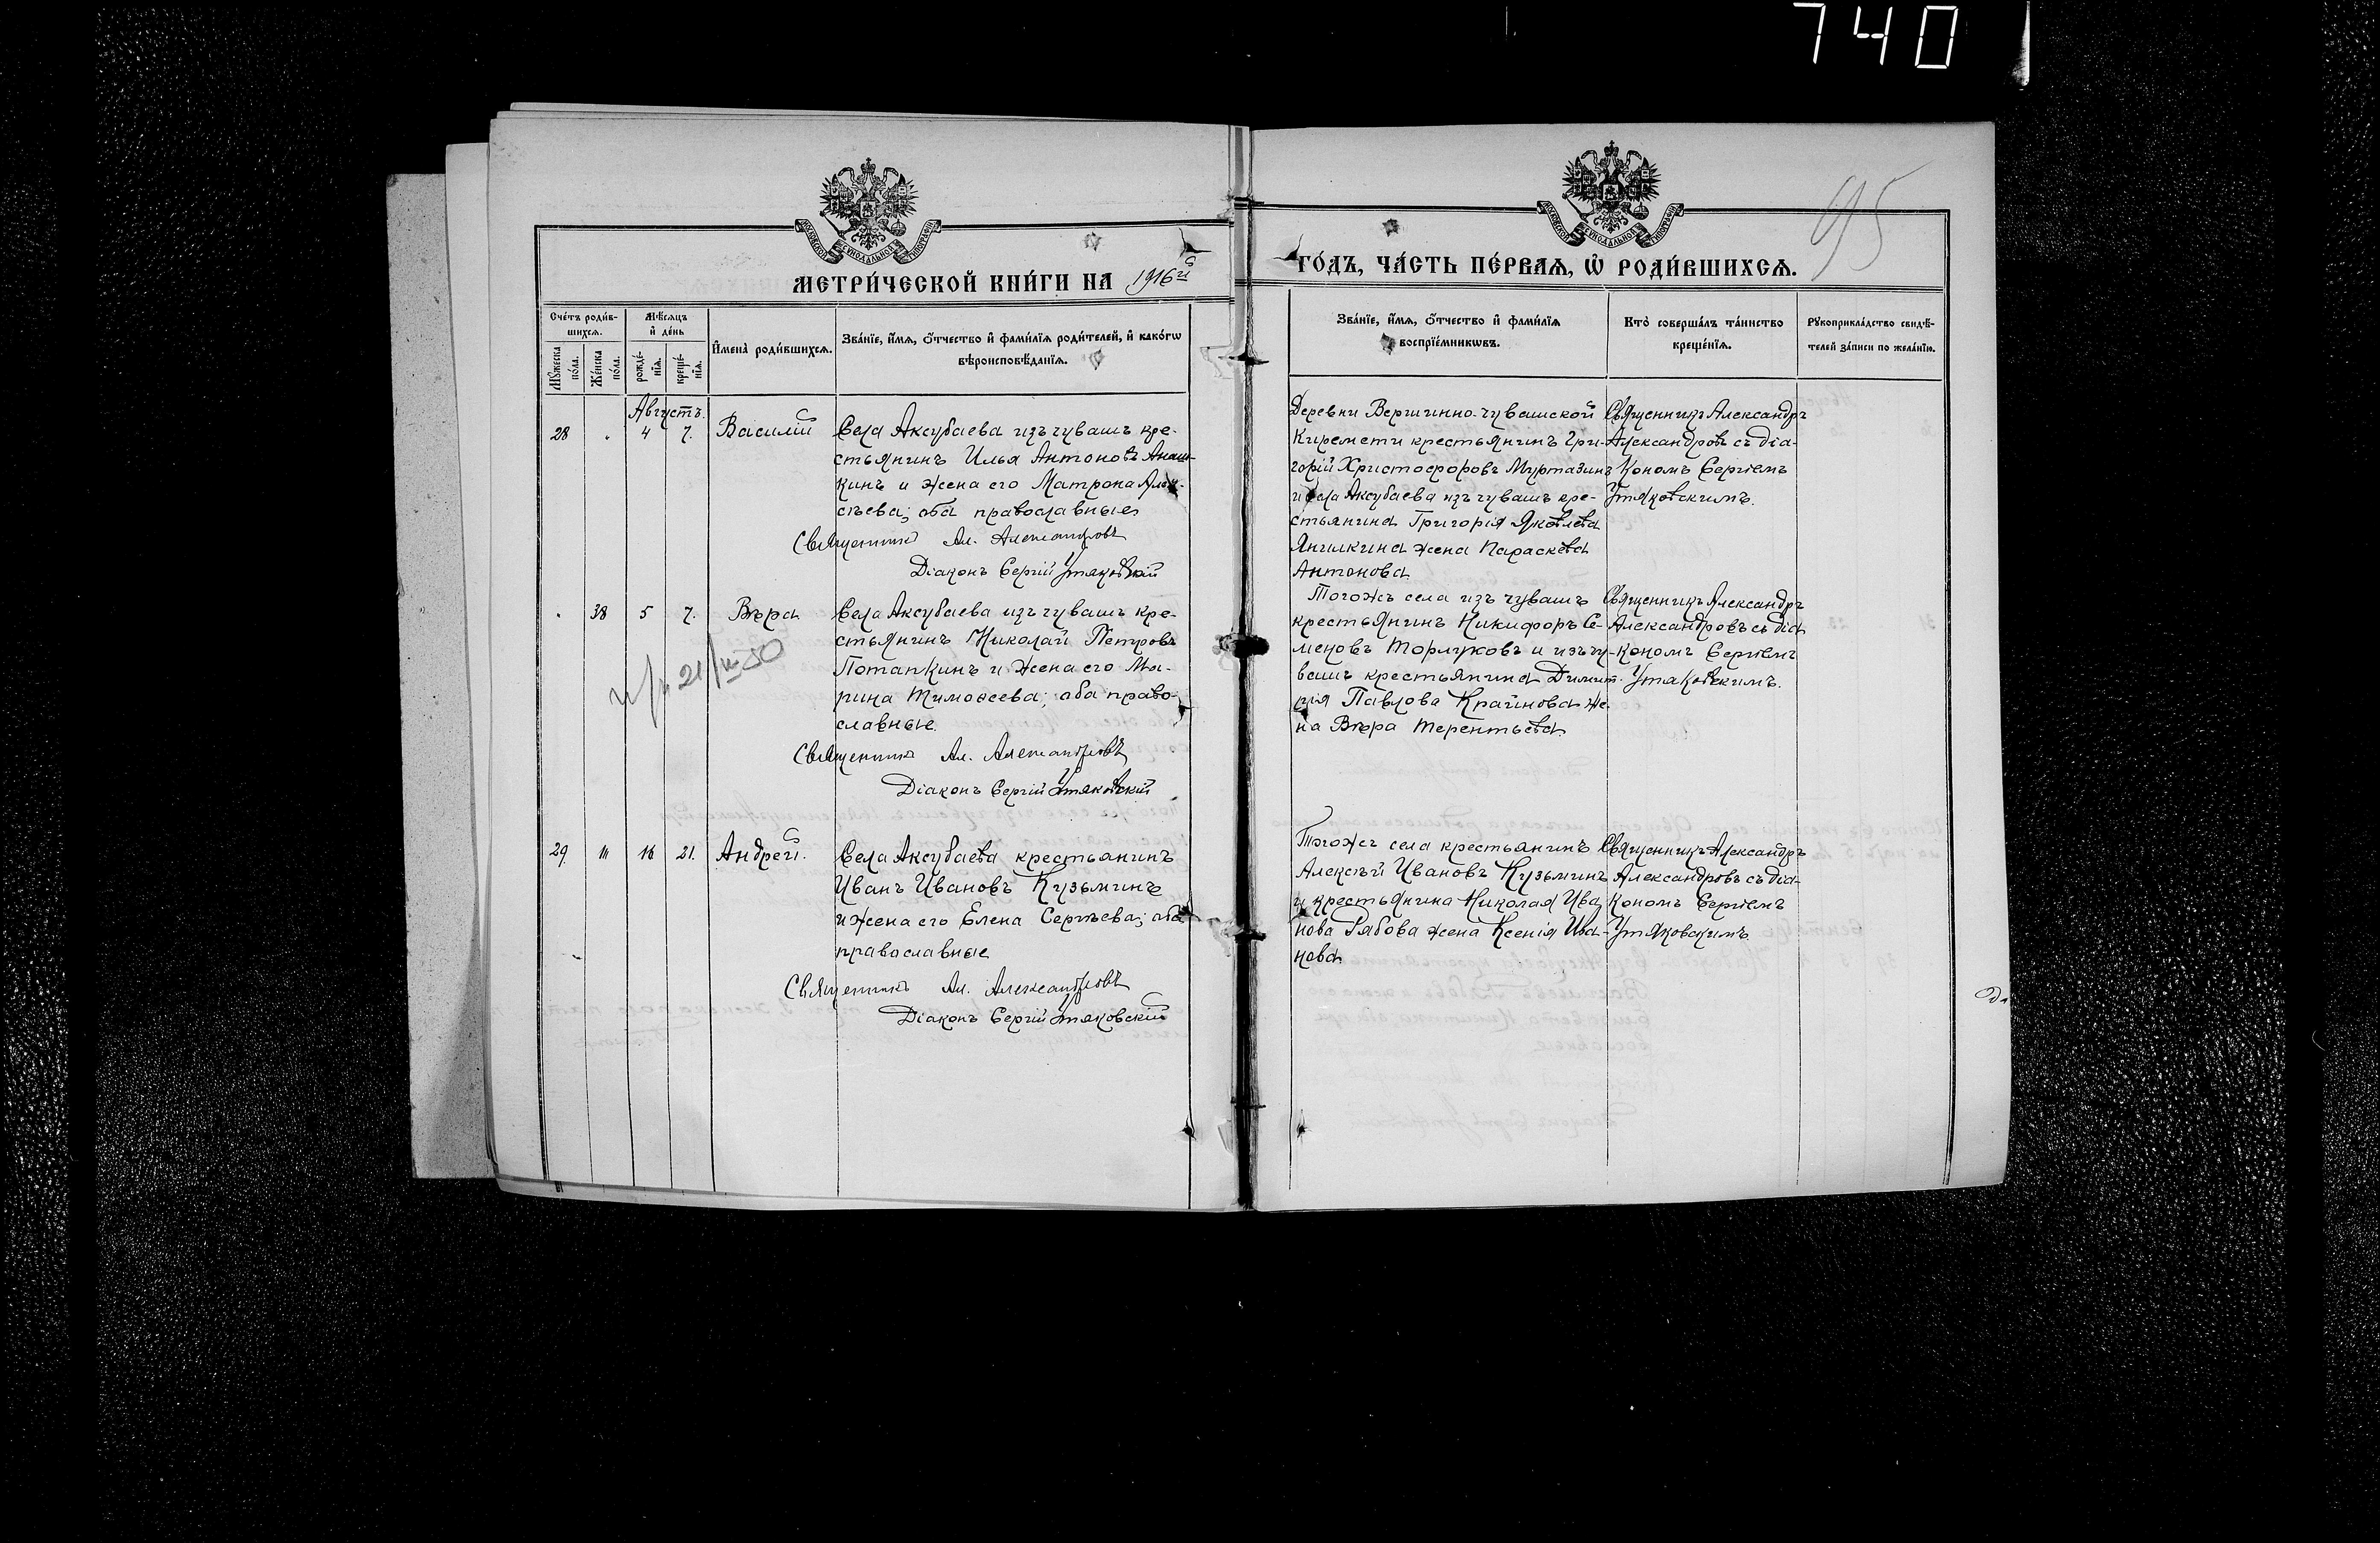 740
95
МЕТРИ́ЧЕСКОЙ КНИ́ГИ НА 1916й
ГО́ДЪ, ЧА́СТЬ ПЕ́РВАЯ, Ѡ҆ РОДИ́ВШИХСЯ.
МОСКОВСКОЙ СѴНОДАЛЬНОЙ ТИПОГРАФІИ
МОСКОВСКОЙ СѴНОДАЛЬНОЙ ТИПОГРАФІИ
Сче́тъ роди́в-
шихся.
Мꙋ́жеска по́ла.
Же́нска по́ла.
Мѣ́сяцъ
и҆ де́нь
рожде́-
нїя.
креще́-
нїя.
И҆мена̀ роди́вшихся.
Зва́нїе, и҆́мя, ѻ҆́тчество и҆ фами́лїя роди́телей, и҆ како́гѡ
вѣроисповѣ́данїя.
Зва́нїе, и҆́мя, ѻ҆́тчество и҆ фами́лїя
воспрїе́мникѡвъ.
Кто̀ соверша́лъ та́инство
креще́нїя.
Рꙋкоприкла́дство свидѣ́-
телей за́писи по жела́нїю.
Августъ.
28 " 4 7. Василій
Села Аксубаева изъ чувашъ кре-
стьянинъ Илья Антоновъ Анаш-
кинъ и жена его Матрона Алек-
сѣева; оба православные
Священникъ Ал. Александровъ
Діаконъ Сергій Утяковскій
Деревни Вершинно-чувашской
Киремети крестьянинъ Гри-
горій Христофоровъ Муртазинъ
и села Аксубаева изъ чувашъ кре-
стьянина Григорія Яковлева
Янилкина жена Параскева
Антонова
Священникъ Александръ
Александровъ съ діа-
кономъ Сергіемъ
Утяковскимъ.
" 38 5 7. Вѣра
Села Аксубаева изъ чувашъ кре-
стьянинъ Николай Петровъ
Потапкинъ и жена его Ма-
рина Тимоѳеева; оба право-
славные.
Священникъ Ал. Александровъ
Діаконъ Сергій Утяковскій
Тогожъ села изъ чувашъ
крестьянинъ Никифоръ Се-
меновъ Торлуковъ и изъ чу-
вашъ крестьянина Димит-
рія Павлова Крайнова же-
на Вѣра Терентьева
Священникъ Александръ
Александровъ съ діа
кономъ Сергіемъ
Утяковскимъ.
29 " 16 21. Андрей.
Села Аксубаева крестьянинъ
Иванъ Ивановъ Кузьминъ
и жена его Елена Сергѣева; оба
православные
Священникъ Ал. Александровъ
Діаконъ Сергій Утяковскій
Тогожъ села крестьянинъ
Алексѣй Ивановъ Кузьминъ
и крестьянина Николая Ива
нова Рябова жена Ксенія Ива-
нова
Священникъ Александръ
Александровъ съ діа-
кономъ Сергіемъ
Утяковскимъ